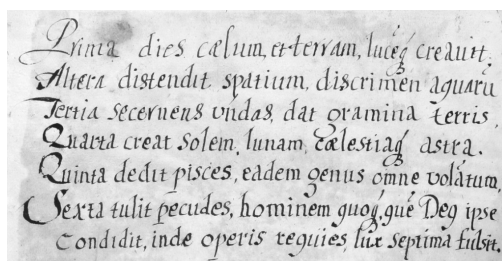 Prima dies cælum, et terram, lucēq creauit.
Altera distendit spatium, discrimen aquarū
Tertia secernens vndas, dat gramina terris.
Quarta creat solem, lunam, cælestiaq astra.
Quinta dedit pisces, eadem genus omne volātum,
Sexta tulit pecudes, hominem quoq, quē Deq ipse
Condidit, inde operis requies, lux septima fulsit.